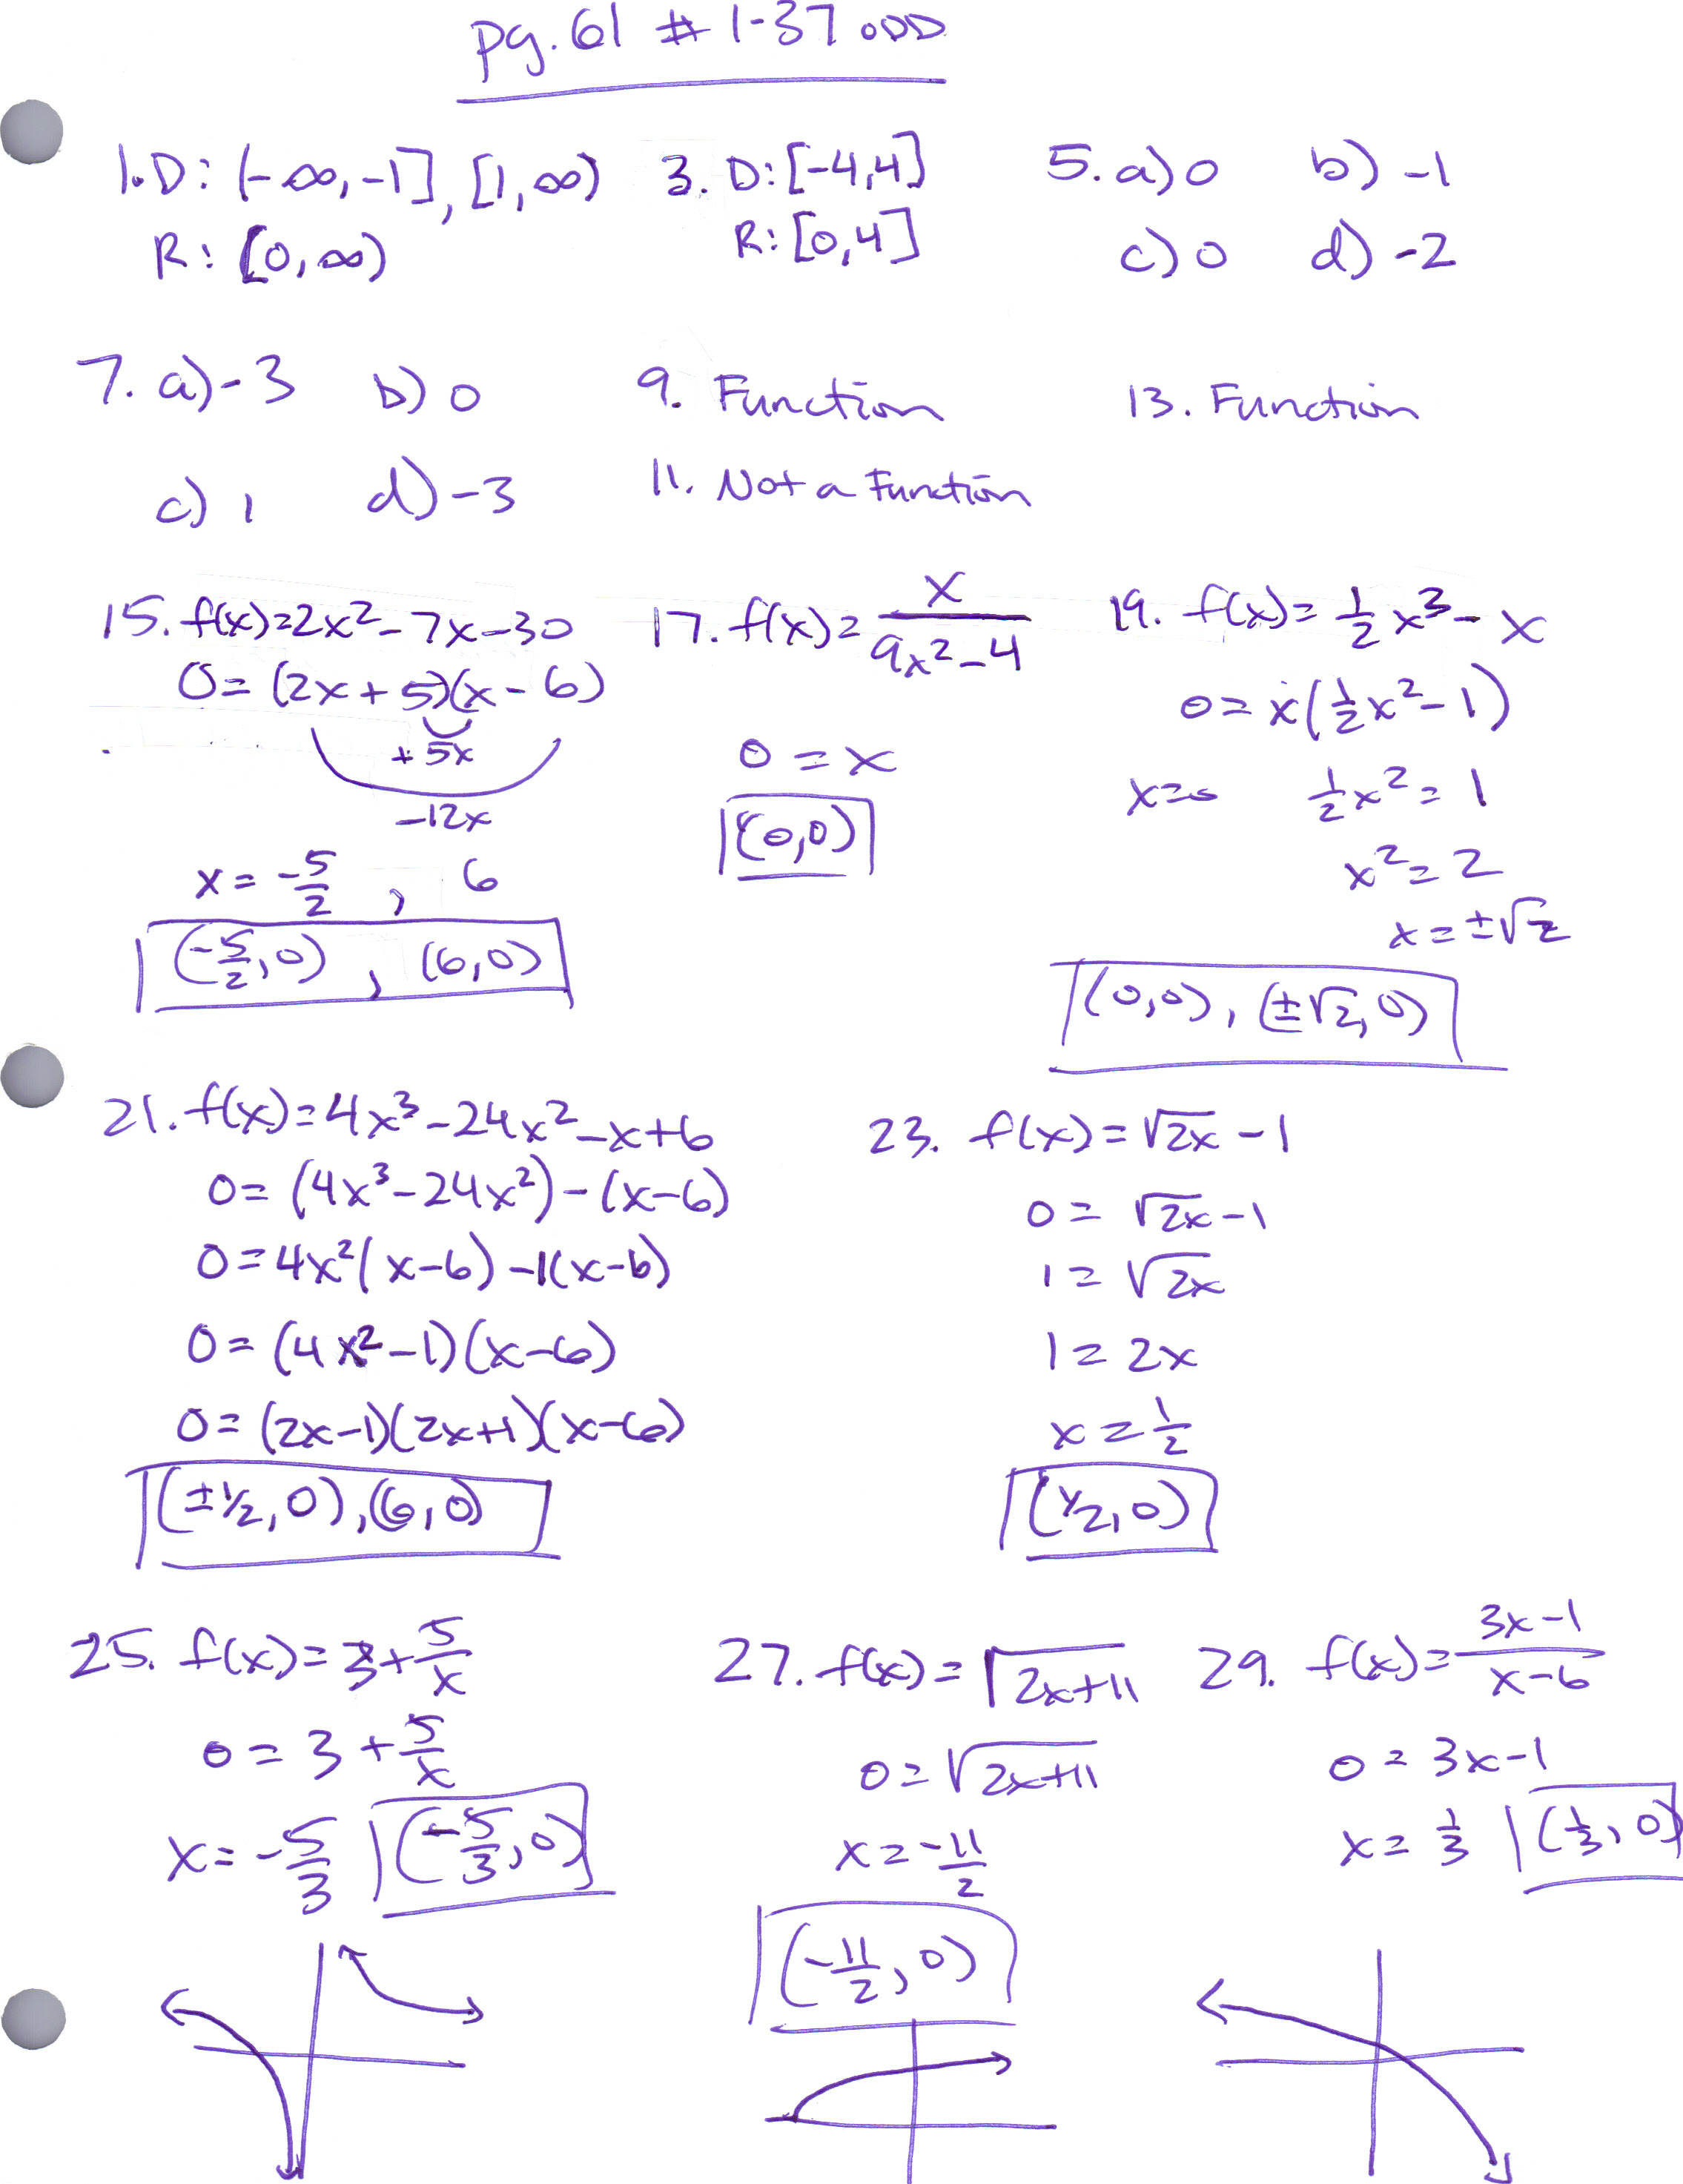 pg. 61 # 1-37 ODD
1. D: (-∞, -1], [1, ∞)
R: [0, ∞)
3. D: [-4, 4]
R: [0, 4]
5. a) 0 b) -1
c) 0 d) -2
7. a) -3 b) 0
c) 1 d) -3
9. Function
11. Not a Function
13. Function
15. f(x)=2x²-7x-30
0=(2x+5)(x-6)
+5x
-12x
x = -5/2 , 6
(-5/2, 0) , (6,0)
17. f(x)= x/(9x²-4)
0 = x
(0,0)
19. f(x)= 1/2 x³ - x
0 = x(1/2 x² - 1)
x=0 1/2 x² = 1
x² = 2
x = ±√2
(0,0), (±√2, 0)
21. f(x)=4x³-24x²-x+6
0= (4x³-24x²)-(x-6)
0=4x²(x-6)-1(x-6)
0=(4x²-1)(x-6)
0=(2x-1)(2x+1)(x-6)
(±1/2, 0), (6,0)
23. f(x)=√2x - 1
0 = √2x - 1
1 = √2x
1 = 2x
x = 1/2
(1/2, 0)
25. f(x)=3+5/x
0 = 3+5/x
x = -5/3 (-5/3, 0)
27. f(x)=√2x+11
0=√2x+11
x = -11/2
(-11/2, 0)
29. f(x)= (3x-1)/(x-6)
0 = 3x-1
x = 1/3 (1/3, 0)